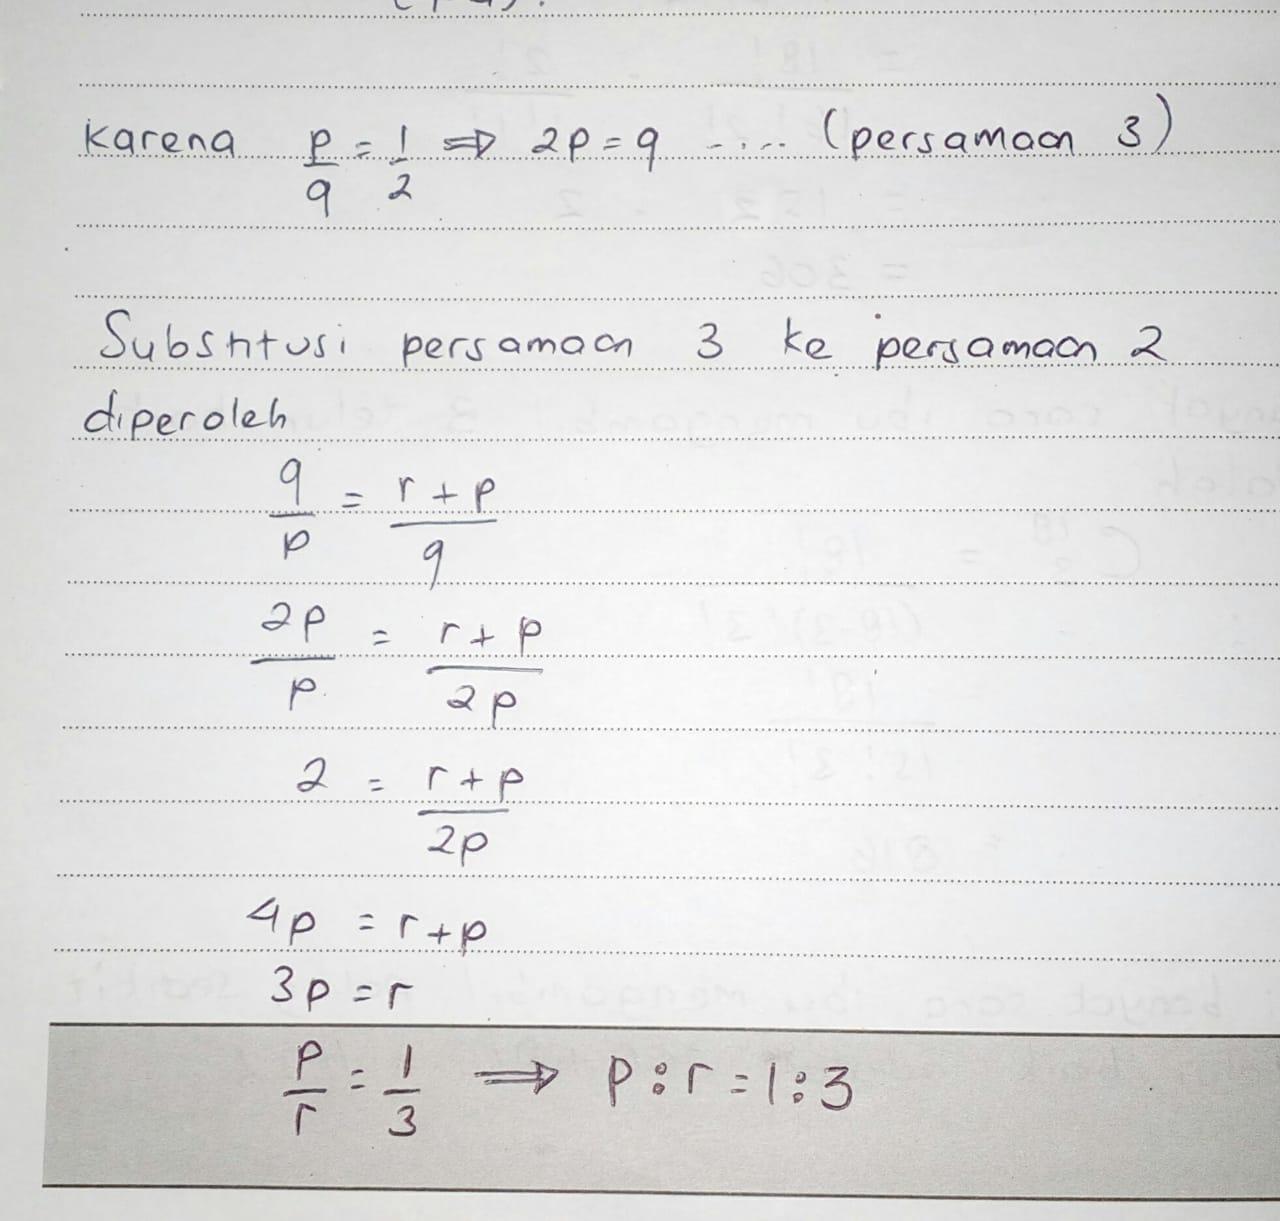 karena p/q = 1/2 ⇒ 2p = q ..... (persamaan 3)
Substitusi persamaan 3 ke persamaan 2
diperoleh
q/p = (r + p)/q
2p/p = (r + p)/2p
2 = (r + p)/2p
4p = r + p
3p = r
p/r = 1/3 ⇒ p : r = 1 : 3